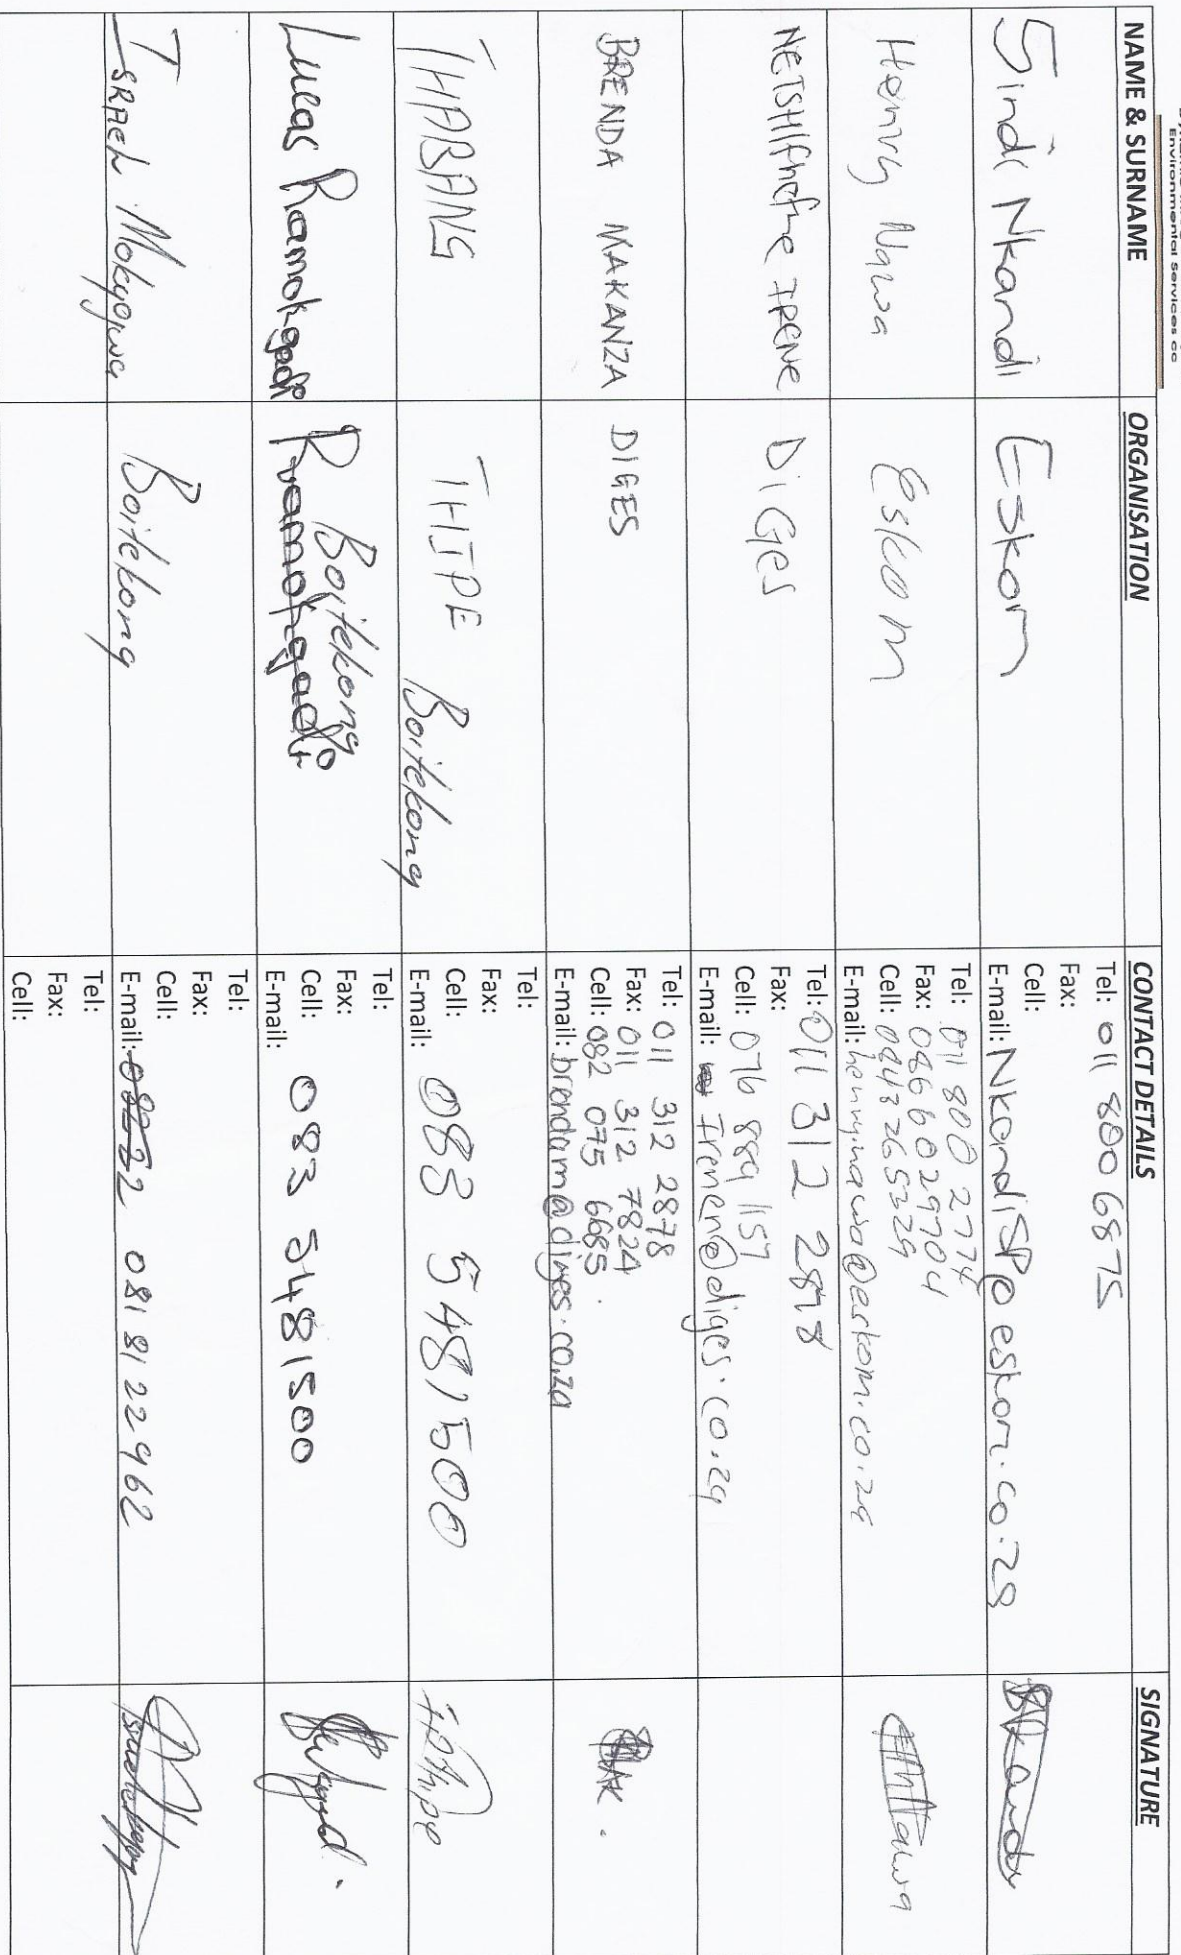 Environmental Services cc
NAME & SURNAME ORGANISATION CONTACT DETAILS SIGNATURE
Sindi Nkandi Eskom
Tel: 011 800 6875
Fax:
Cell:
E-mail: NkandiSP@eskom.co.za
Henry Nawa Eskom
Tel: 011 800 2774
Fax: 0866029704
Cell:
E-mail: henry.nawa@eskom.co.za
IRENE DiGES
Tel: 011 312 2878
Fax:
Cell: 076 889 1157
E-mail: Irenen@diges.co.za
BRENDA MAKANZA DIGES
Tel: 011 312 2878
Fax: 011 312 7824
Cell: 082 075 6685
E-mail: brendam@diges.co.za
THABANG THIPE Boitekong
Tel:
Fax:
Cell: 083 5481500
E-mail:
Lucas Ramokgadi Ramokgadi Boitekong
Tel:
Fax:
Cell: 083 5481500
E-mail:
ISRAEL Mokgojwa Boitekong
Tel:
Fax:
Cell:
E-mail: 081 8122962
Tel:
Fax:
Cell: